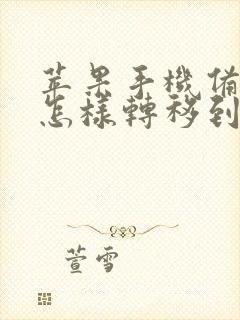 苹果手機備
怎樣轉移到
萱雪